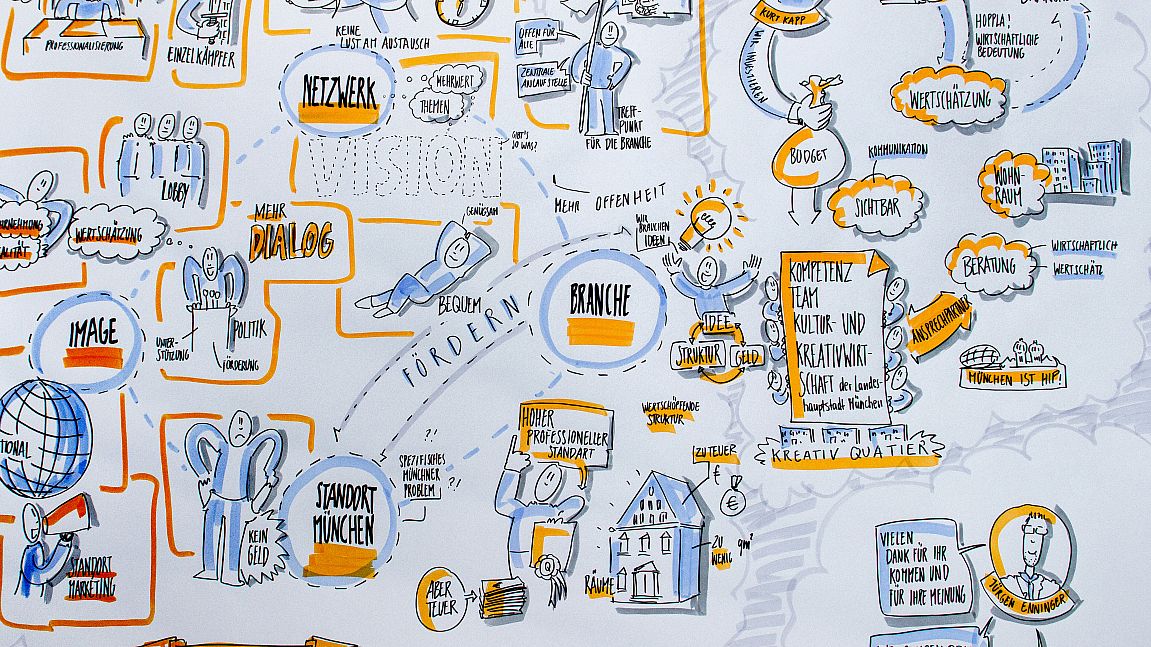 PROFESSIONALISIERUNG
EINZELKÄMPFER
KEINE
LUST AM AUSTAUSCH
NETZWERK
MEHRWERT
THEMEN
VISION
GIBT'S
SO WAS?
OFFEN FÜR
ALLE
ZENTRALE
ANLAUFSTELLE
TREFF-
PUNKT
FÜR DIE BRANCHE
KURT KAPP
WIR INVESTIEREN
HOPPLA!
WIRTSCHAFTLICHE
BEDEUTUNG
WERTSCHÄTZUNG
BUDGET
KOMMUNIKATION
SICHTBAR
WOHN-
RAUM
BERATUNG
WIRTSCHAFTLICH
WERTSCHÄTZ
LOBBY
WERTSCHÄTZUNG
MEHR
DIALOG
UNTER-
STÜTZUNG
POLITIK
FÖRDERUNG
IMAGE
GENÜGSAM
BEQUEM
FÖRDERN
MEHR OFFENHEIT
WIR
BRAUCHEN
IDEEN
BRANCHE
IDEE
STRUKTUR
GELD
KOMPETENZ
TEAM
KULTUR- UND
KREATIVWIRT-
SCHAFT der Landes-
hauptstadt München
KREATIV QUATIER
ANSPRECHPARTNER
MÜNCHEN IST HIP!
TIONAL
STANDORT
MARKETING
KEIN
GELD
STANDORT
MÜNCHEN
SPEZIFISCHES
MÜNCHNER
PROBLEM
?!
?!
HOHER
PROFESSIONELLER
STANDART
WERTSCHÖPFENDE
STRUKTUR
ZU TEUER
€
€
ZU
WENIG
qm²
RÄUME
ABER
TEUER
VIELEN
DANK FÜR IHR
KOMMEN UND
FÜR IHRE MEINUNG
JÜRGEN ENNINGER